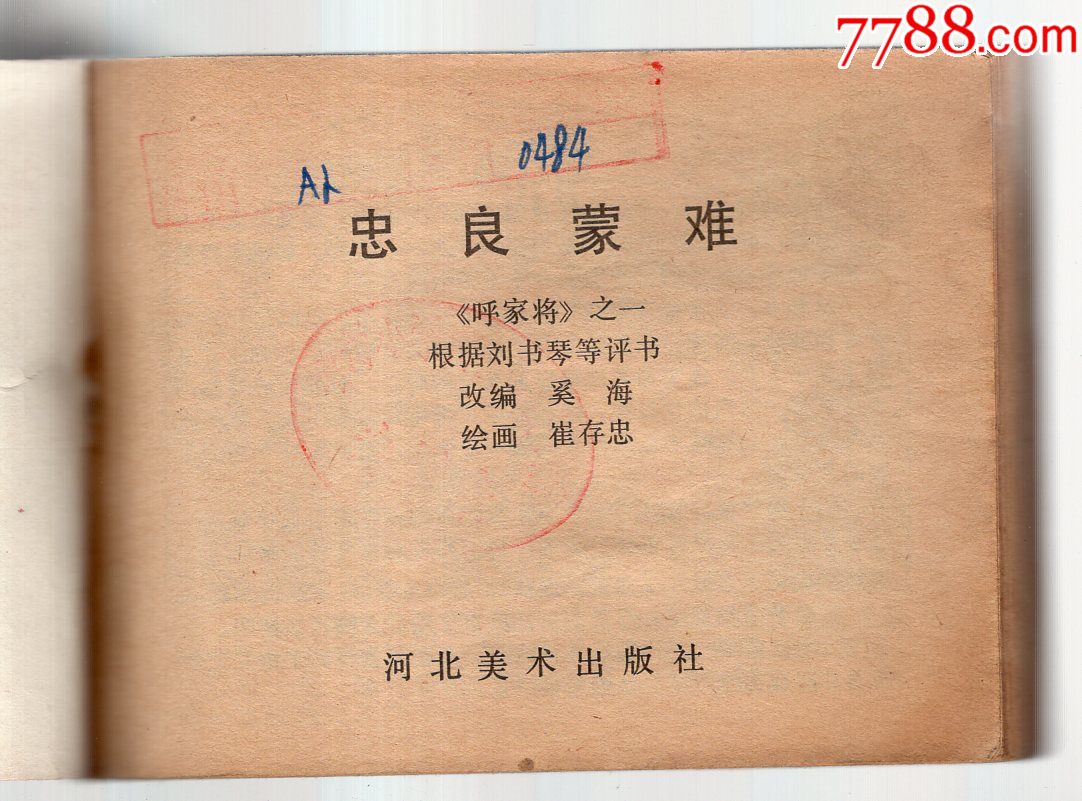 7788.com
0484
忠良蒙难
《呼家将》之一
根据刘书琴等评书
改编 奚 海
绘画 崔存忠
河北美术出版社